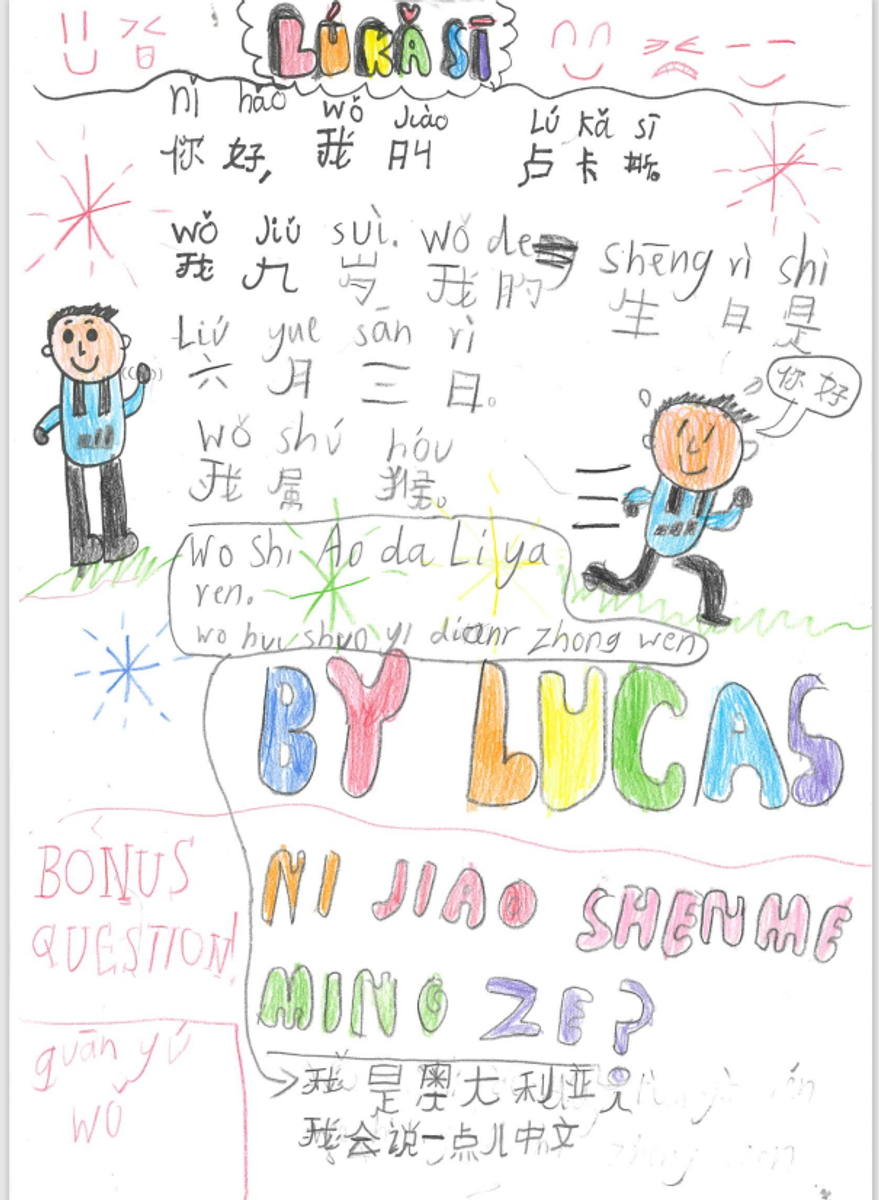 LÚKǍSĪ
nǐ hǎo wǒ Jiào Lú Kǎ sī
你好,我叫 卢卡斯。
wǒ Jiǔ suì. wǒ de shēng rì shì
我九岁 我的生日是
Liù yue sān rì
六月三日。
你好
wǒ shǔ hóu
我属猴。
Wo Shi Ao da Li ya
ren.
wo hui shuo yi dianr zhong wen
BY LUCAS
BONUS
QUESTION!
NI JIAO SHENME
MING ZE?
guān yú
wǒ
我是奥大利亚人
我会说一点儿中文